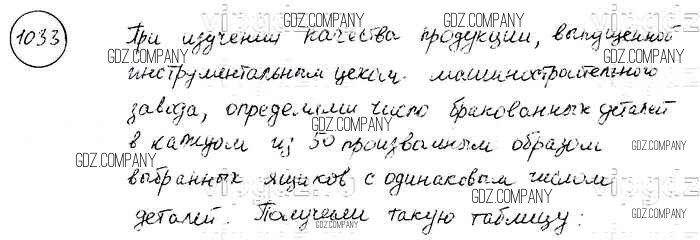 1033 При изучении качества продукции, выпущенной
инструментальным цехом машиностроительного
завода, определили число бракованных деталей
в каждом из 50 произвольным образом
выбранных ящиков с одинаковым числом
деталей. Получили такую таблицу:
GDZ.COMPANY
GDZ.COMPANY
GDZ.COMPANY
GDZ.COMPANY
GDZ.COMPANY
GDZ.COMPANY
GDZ.COMPANY
GDZ.COMPANY
GDZ.COMPANY
GDZ.COMPANY
GDZ.COMPANY
GDZ.COMPANY